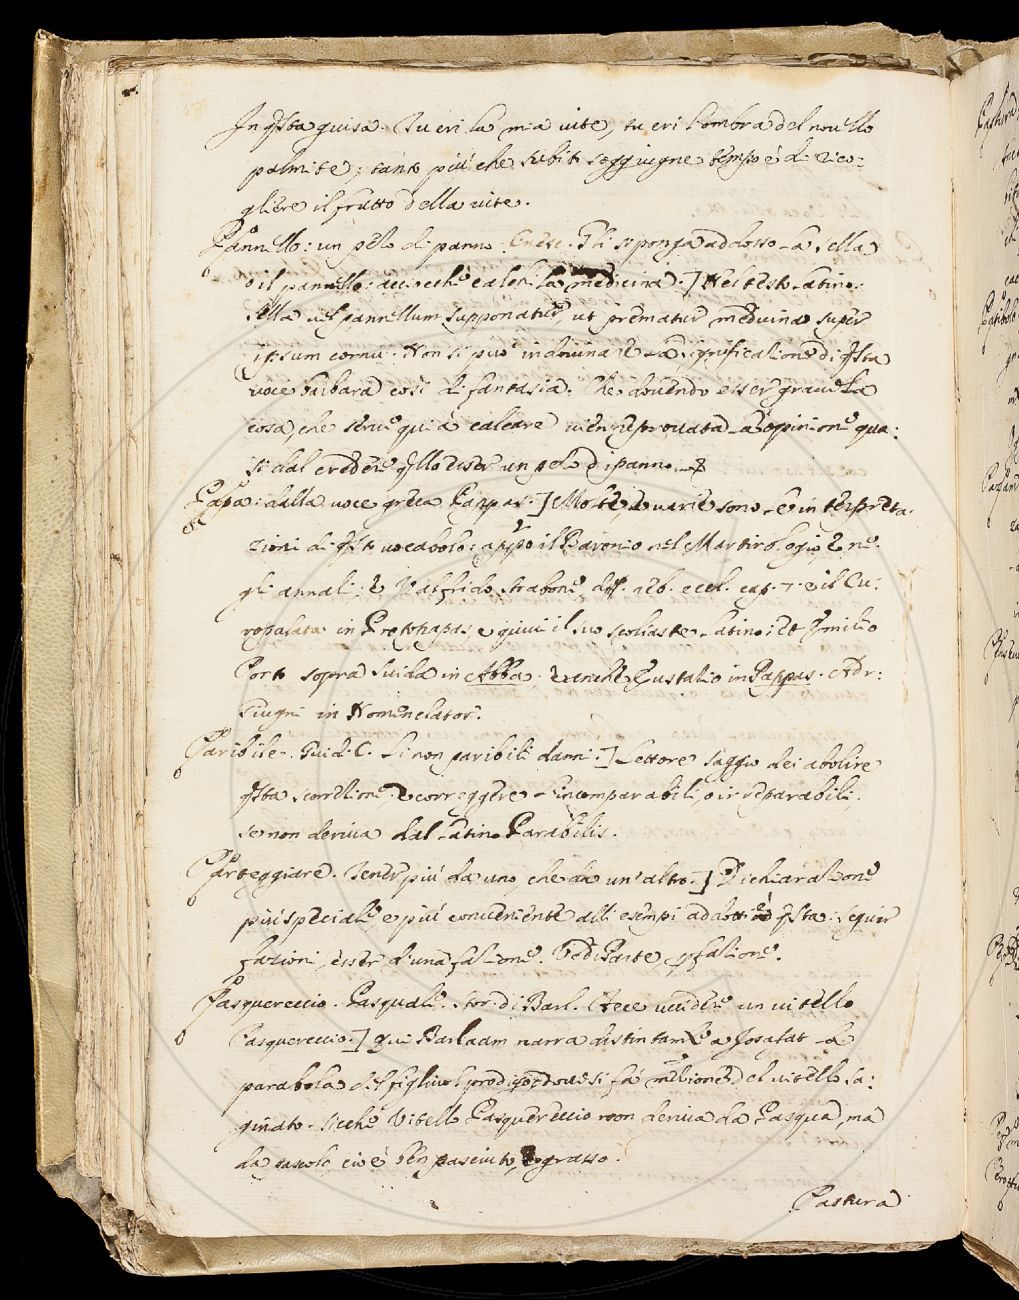 In q̃sta guisa. Tu eri la mia vite, tu eri l'ombra del nouello
palmite; tanto più che subito soggiugne tempo è di rico:
gliere il frutto della vite.
Pannello: un pelo di panno. Cresc. Gli si ponga addosso la sella
o il pannello: acciocchè calchi la medicina.] Nel testo latino:
Sella uel pannellum supponatur, ut prematur medicina super
ipsum cornu. Non si può indouinare la significatione di q̃sta
voce barbara così di fantasia. Che douendo esser graue la
cosa, che serue qui à calcare uien reprouata la opinione qua:
si dal credere q̃llo esser un pelo di panno.
Papa: dalla uoce greca Pappas.] Molte, e uarie sono le interpreta:
zioni di q̃sto uocabolo: appo il Baronio nel Martirologio, e ne
gli annali; e Valfrido Strabone reb. eccl. cap. 7. e il Cu:
ropalata in Protopapas e quiui il suo scoliaste latino: et Emilio
Porto sopra Suida in Abba, et anche Eustatio in Pappas. Adr:
Giugni in Nomenclator.
Paribile. Guid. G. Li non paribili danni.] Lettore saggio dei abolire
q̃sta scorretione e correggere l'incomparabili, o irreparabili.
se non deriua dal latino Parabilis.
Parteggiare. Tener più da uno, che da un'altro.] Dichiaratione
più speciale, e più conueniente alli esempi addotti è q̃sta: seguir
fazioni, esser d'una fatione. Vedi Parte, p fatione.
Pasquereccio. Pasquale. Stor. di Barl. Fece uccidere un uitello
Pasquereccio.] qui Barlaam narra distintam.e a Josafat la
parabola del figliuol prodigo, doue si fa mentione del uitello sa:
ginato. Sicchè Vitello Pasquereccio non deriua da Pasqua, ma
da pascolo cioè ben pasciuto, e grasso.
Pastura